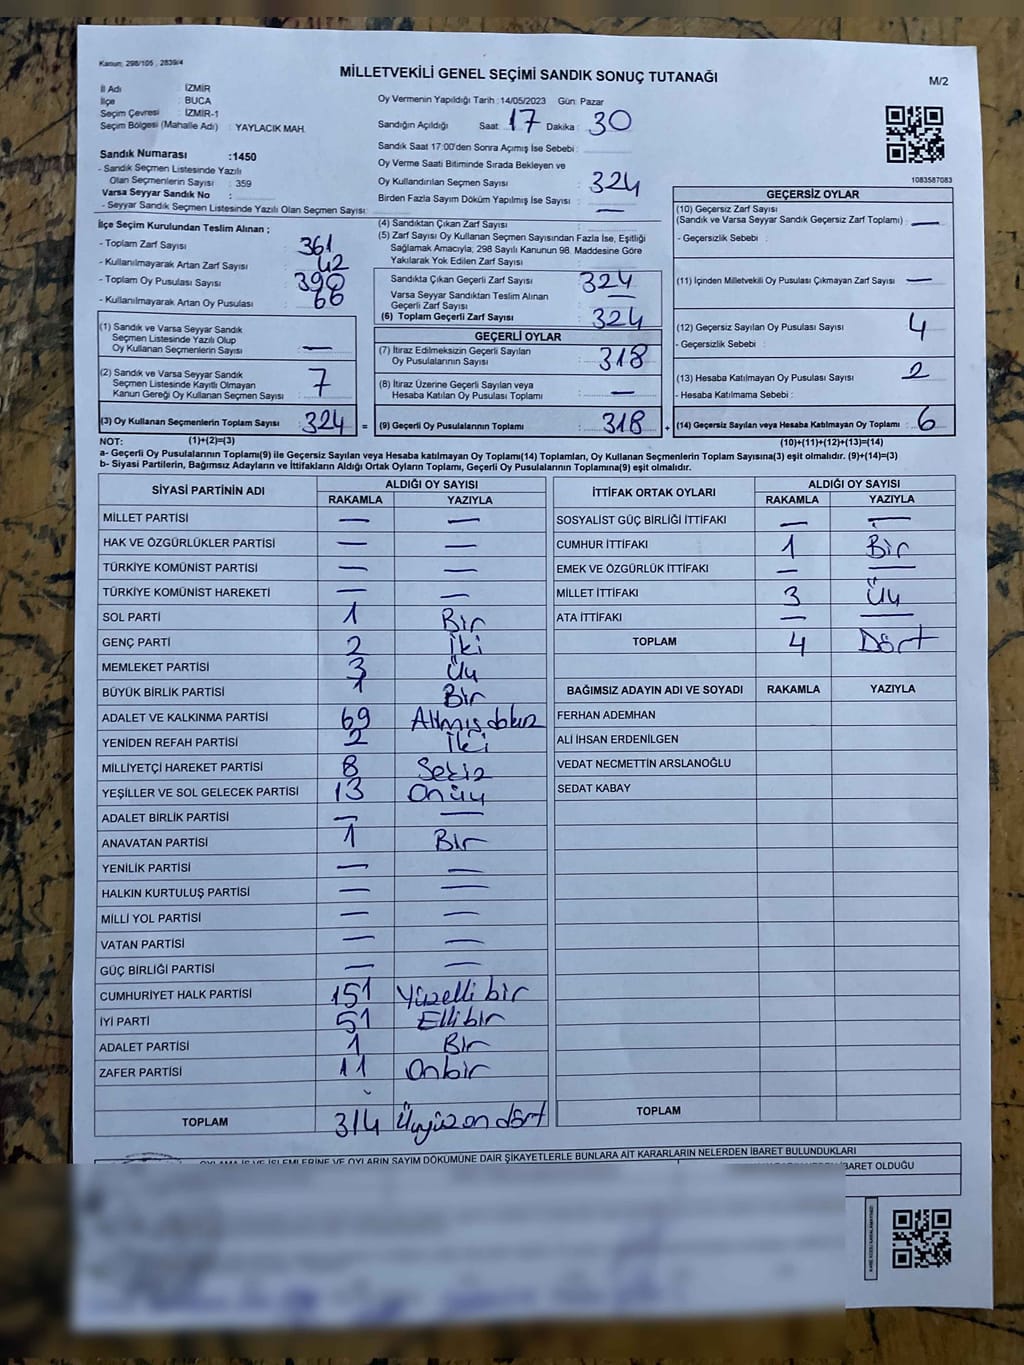 Kanun; 298/105 , 2839/4
MİLLETVEKİLİ GENEL SEÇİMİ SANDIK SONUÇ TUTANAĞI
M/2
İl Adı : İZMİR
İlçe : BUCA
Seçim Çevresi : İZMİR-1
Seçim Bölgesi (Mahalle Adı) : YAYLACIK MAH.
Oy Vermenin Yapıldığı Tarih :14/05/2023 Gün: Pazar
Sandığın Açıldığı Saat: 17 Dakika: 30
Sandık Saat 17:00'den Sonra Açımış İse Sebebi:
Oy Verme Saati Bitiminde Sırada Bekleyen ve
Oy Kullandırılan Seçmen Sayısı : 324
Birden Fazla Sayım Döküm Yapılmış İse Sayısı : —
Sandık Numarası :1450
- Sandık Seçmen Listesinde Yazılı
Olan Seçmenlerin Sayısı : 359
Varsa Seyyar Sandık No :
- Seyyar Sandık Seçmen Listesinde Yazılı Olan Seçmen Sayısı:
1083587083
İlçe Seçim Kurulundan Teslim Alınan ;
- Toplam Zarf Sayısı : 361
- Kullanılmayarak Artan Zarf Sayısı : 42
- Toplam Oy Pusulası Sayısı : 390
- Kullanılmayarak Artan Oy Pusulası : 66
(1) Sandık ve Varsa Seyyar Sandık
Seçmen Listesinde Yazılı Olup
Oy Kullanan Seçmenlerin Sayısı : —
(2) Sandık ve Varsa Seyyar Sandık
Seçmen Listesinde Kayıtlı Olmayan
Kanun Gereği Oy Kullanan Seçmen Sayısı : 7
(3) Oy Kullanan Seçmenlerin Toplam Sayısı : 324 =
(4) Sandıktan Çıkan Zarf Sayısı :
(5) Zarf Sayısı Oy Kullanan Seçmen Sayısından Fazla İse, Eşitliği
Sağlamak Amacıyla; 298 Sayılı Kanunun 98. Maddesine Göre
Yakılarak Yok Edilen Zarf Sayısı :
Sandıkta Çıkan Geçerli Zarf Sayısı : 324
Varsa Seyyar Sandıktan Teslim Alınan
Geçerli Zarf Sayısı : —
(6) Toplam Geçerli Zarf Sayısı : 324
GEÇERLİ OYLAR
(7) İtiraz Edilmeksizin Geçerli Sayılan
Oy Pusulalarının Sayısı : 318
(8) İtiraz Üzerine Geçerli Sayılan veya
Hesaba Katılan Oy Pusulası Toplamı : —
(9) Geçerli Oy Pusulalarının Toplamı : 318 +
GEÇERSİZ OYLAR
(10) Geçersiz Zarf Sayısı
(Sandık ve Varsa Seyyar Sandık Geçersiz Zarf Toplamı) : —
- Geçersizlik Sebebi :
(11) İçinden Milletvekili Oy Pusulası Çıkmayan Zarf Sayısı : —
(12) Geçersiz Sayılan Oy Pusulası Sayısı : 4
- Geçersizlik Sebebi :
(13) Hesaba Katılmayan Oy Pusulası Sayısı : 2
- Hesaba Katılmama Sebebi :
(14) Geçersiz Sayılan veya Hesaba Katılmayan Oy Toplamı : 6
NOT: (1)+(2)=(3)
(10)+(11)+(12)+(13)=(14)
a- Geçerli Oy Pusulalarının Toplamı(9) ile Geçersiz Sayılan veya Hesaba katılmayan Oy Toplamı(14) Toplamları, Oy Kullanan Seçmenlerin Toplam Sayısına(3) eşit olmalıdır. (9)+(14)=(3)
b- Siyasi Partilerin, Bağımsız Adayların ve İttifakların Aldığı Ortak Oyların Toplamı, Geçerli Oy Pusulalarının Toplamına(9) eşit olmalıdır.
SİYASİ PARTİNİN ADI ALDIĞI OY SAYISI
RAKAMLA YAZIYLA
MİLLET PARTİSİ — —
HAK VE ÖZGÜRLÜKLER PARTİSİ — —
TÜRKİYE KOMÜNİST PARTİSİ — —
TÜRKİYE KOMÜNİST HAREKETİ — —
SOL PARTİ 1 Bir
GENÇ PARTİ 2 İki
MEMLEKET PARTİSİ 3 Üç
BÜYÜK BİRLİK PARTİSİ 1 Bir
ADALET VE KALKINMA PARTİSİ 69 Altmışdokuz
YENİDEN REFAH PARTİSİ 2 İki
MİLLİYETÇİ HAREKET PARTİSİ 8 Sekiz
YEŞİLLER VE SOL GELECEK PARTİSİ 13 Onüç
ADALET BİRLİK PARTİSİ — —
ANAVATAN PARTİSİ 1 Bir
YENİLİK PARTİSİ — —
HALKIN KURTULUŞ PARTİSİ — —
MİLLİ YOL PARTİSİ — —
VATAN PARTİSİ — —
GÜÇ BİRLİĞİ PARTİSİ — —
CUMHURİYET HALK PARTİSİ 151 Yüzelli bir
İYİ PARTİ 51 Elli bir
ADALET PARTİSİ 1 Bir
ZAFER PARTİSİ 11 Onbir
TOPLAM 314 Üçyüz on dört
İTTİFAK ORTAK OYLARI ALDIĞI OY SAYISI
RAKAMLA YAZIYLA
SOSYALİST GÜÇ BİRLİĞİ İTTİFAKI — —
CUMHUR İTTİFAKI 1 Bir
EMEK VE ÖZGÜRLÜK İTTİFAKI — —
MİLLET İTTİFAKI 3 Üç
ATA İTTİFAKI — —
TOPLAM 4 Dört
BAĞIMSIZ ADAYIN ADI VE SOYADI RAKAMLA YAZIYLA
FERHAN ADEMHAN
ALİ İHSAN ERDENİLGEN
VEDAT NECMETTİN ARSLANOĞLU
SEDAT KABAY
TOPLAM
OYLAMA İŞ VE İŞLEMLERİNE VE OYLARIN SAYIM DÖKÜMÜNE DAİR ŞİKAYETLERLE BUNLARA AİT KARARLARIN NELERDEN İBARET BULUNDUKLARI
İBARET OLDUĞU